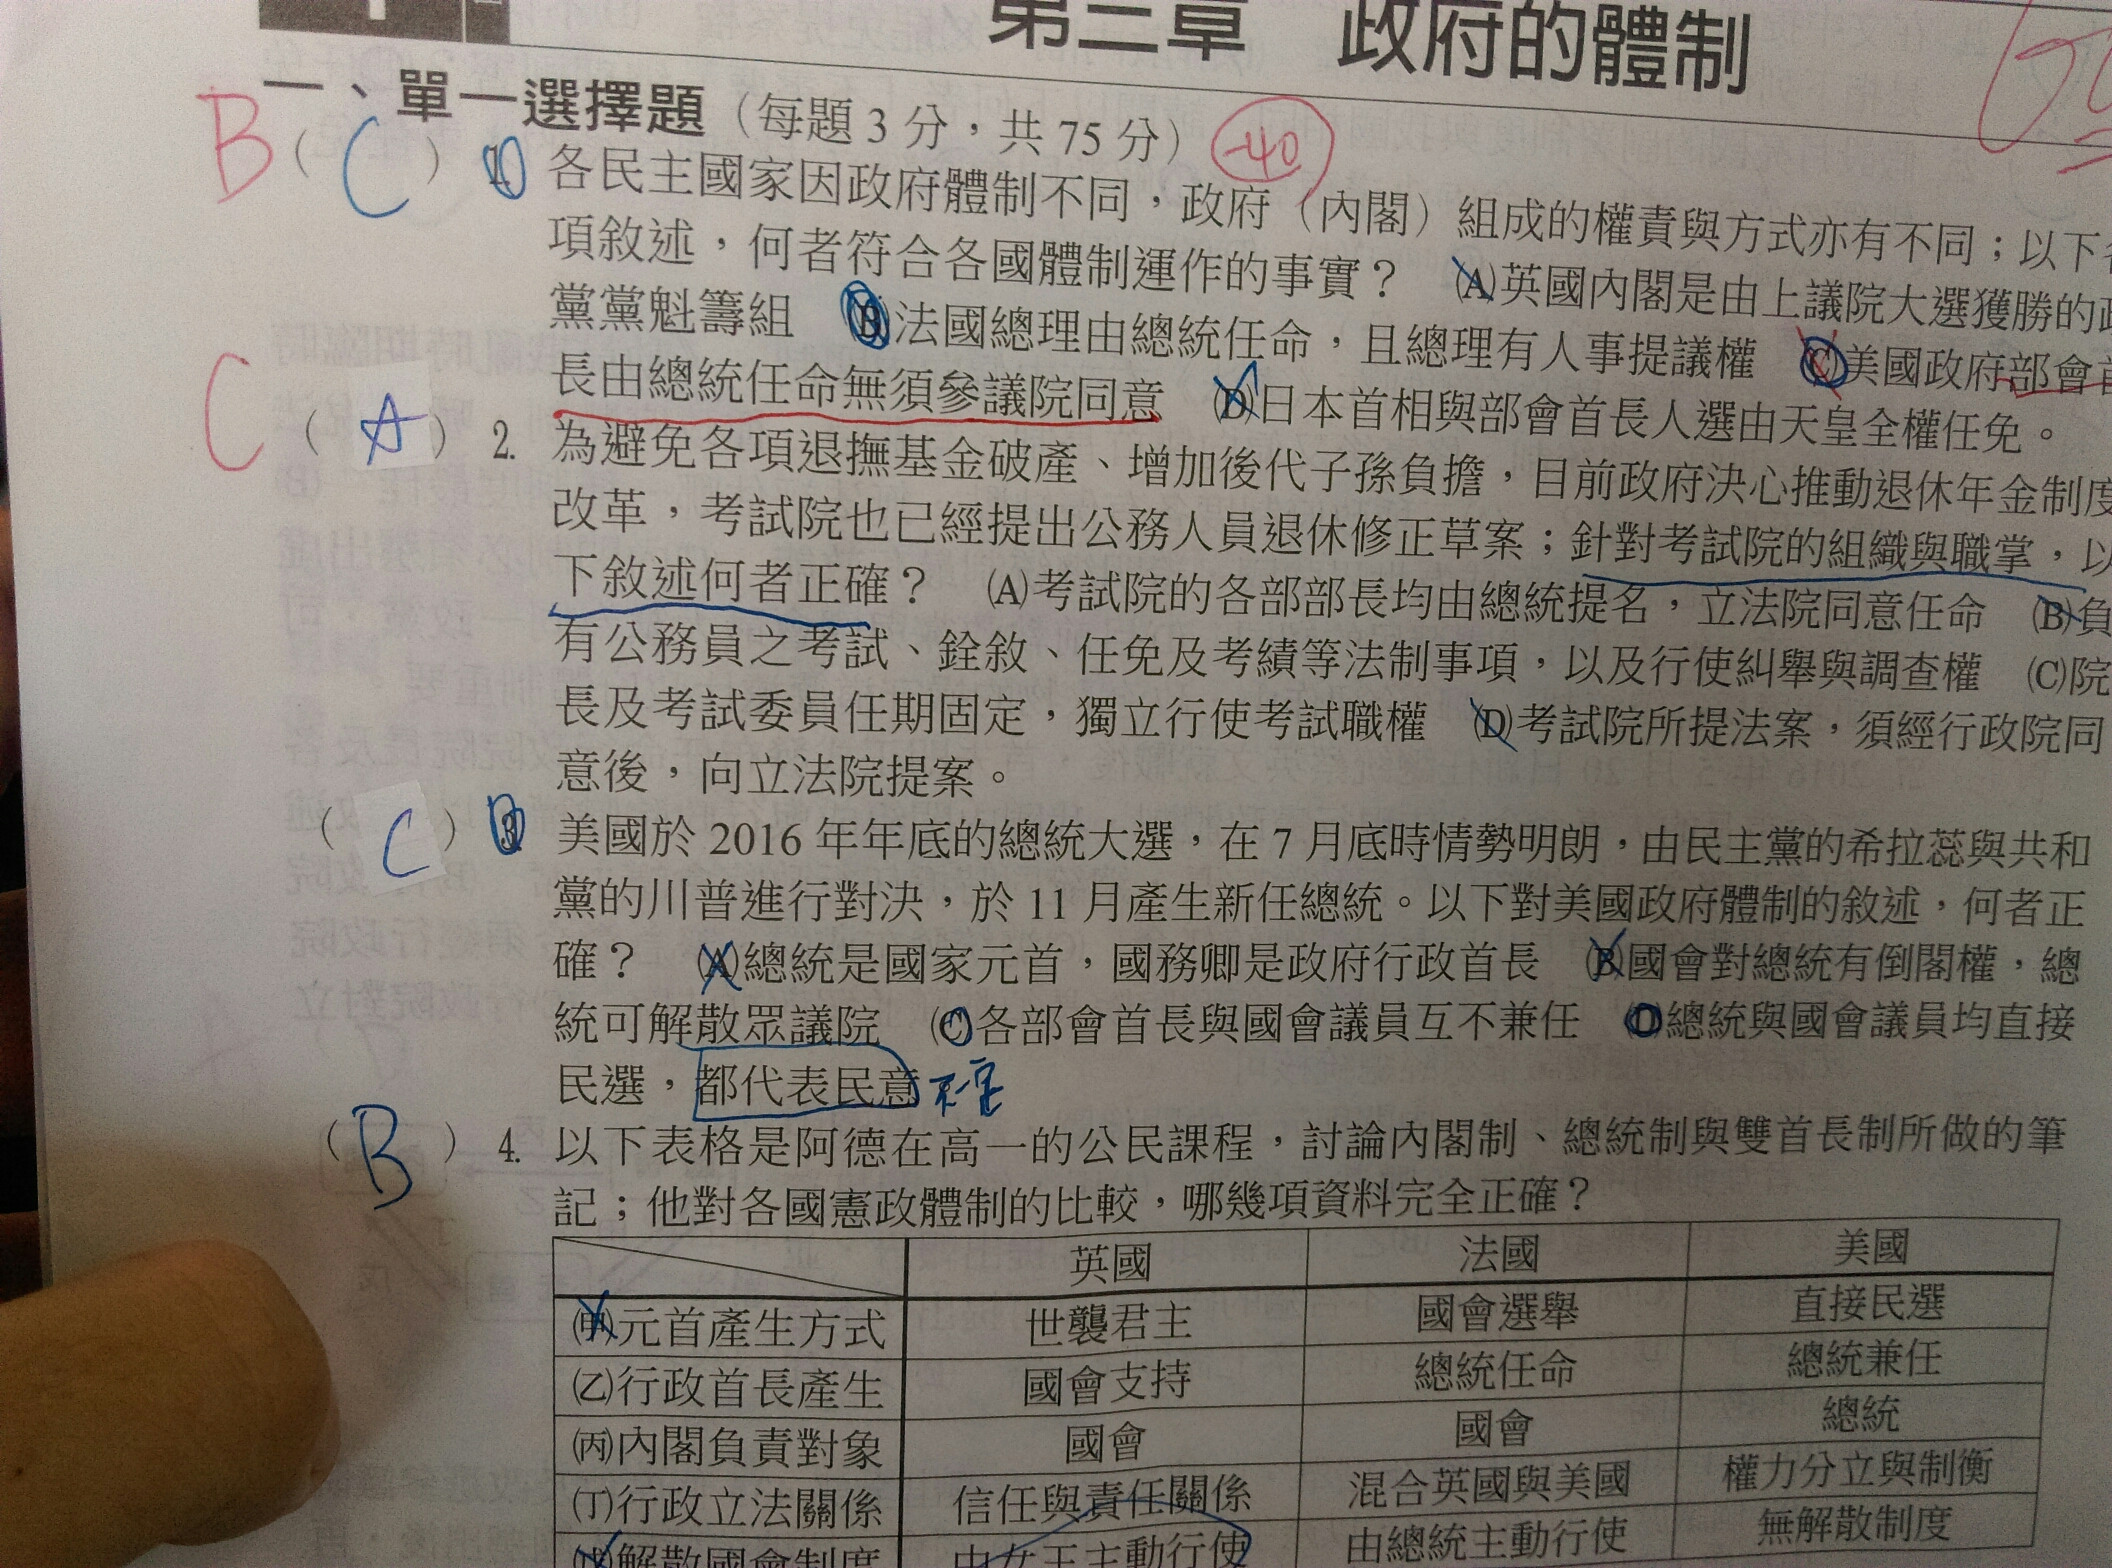 第三章 政府的體制
一、單一選擇題（每題3分，共75分） -40
B（C）1. 各民主國家因政府體制不同，政府（內閣）組成的權責與方式亦有不同；以下
項敘述，何者符合各國體制運作的事實？ (A)英國內閣是由上議院大選獲勝的
黨黨魁籌組 (B)法國總理由總統任命，且總理有人事提議權 (C)美國政府部會首
長由總統任命無須參議院同意 (D)日本首相與部會首長人選由天皇全權任免。
C（A）2. 為避免各項退撫基金破產、增加後代子孫負擔，目前政府決心推動退休年金制度
改革，考試院也已經提出公務人員退休修正草案；針對考試院的組織與職掌，以
下敘述何者正確？ (A)考試院的各部部長均由總統提名，立法院同意任命 (B)負
有公務員之考試、銓敘、任免及考績等法制事項，以及行使糾舉與調查權 (C)院
長及考試委員任期固定，獨立行使考試職權 (D)考試院所提法案，須經行政院同
意後，向立法院提案。
（C）3. 美國於2016年年底的總統大選，在7月底時情勢明朗，由民主黨的希拉蕊與共和
黨的川普進行對決，於11月產生新任總統。以下對美國政府體制的敘述，何者正
確？ (A)總統是國家元首，國務卿是政府行政首長 (B)國會對總統有倒閣權，總
統可解散眾議院 (C)各部會首長與國會議員互不兼任 (D)總統與國會議員均直接
民選，都代表民意 不一定
（B）4. 以下表格是阿德在高一的公民課程，討論內閣制、總統制與雙首長制所做的筆
記；他對各國憲政體制的比較，哪幾項資料完全正確？
英國 法國 美國
(甲)元首產生方式 世襲君主 國會選舉 直接民選
(乙)行政首長產生 國會支持 總統任命 總統兼任
(丙)內閣負責對象 國會 國會 總統
(丁)行政立法關係 信任與責任關係 混合英國與美國 權力分立與制衡
(戊)解散國會制度 由女王主動行使 由總統主動行使 無解散制度